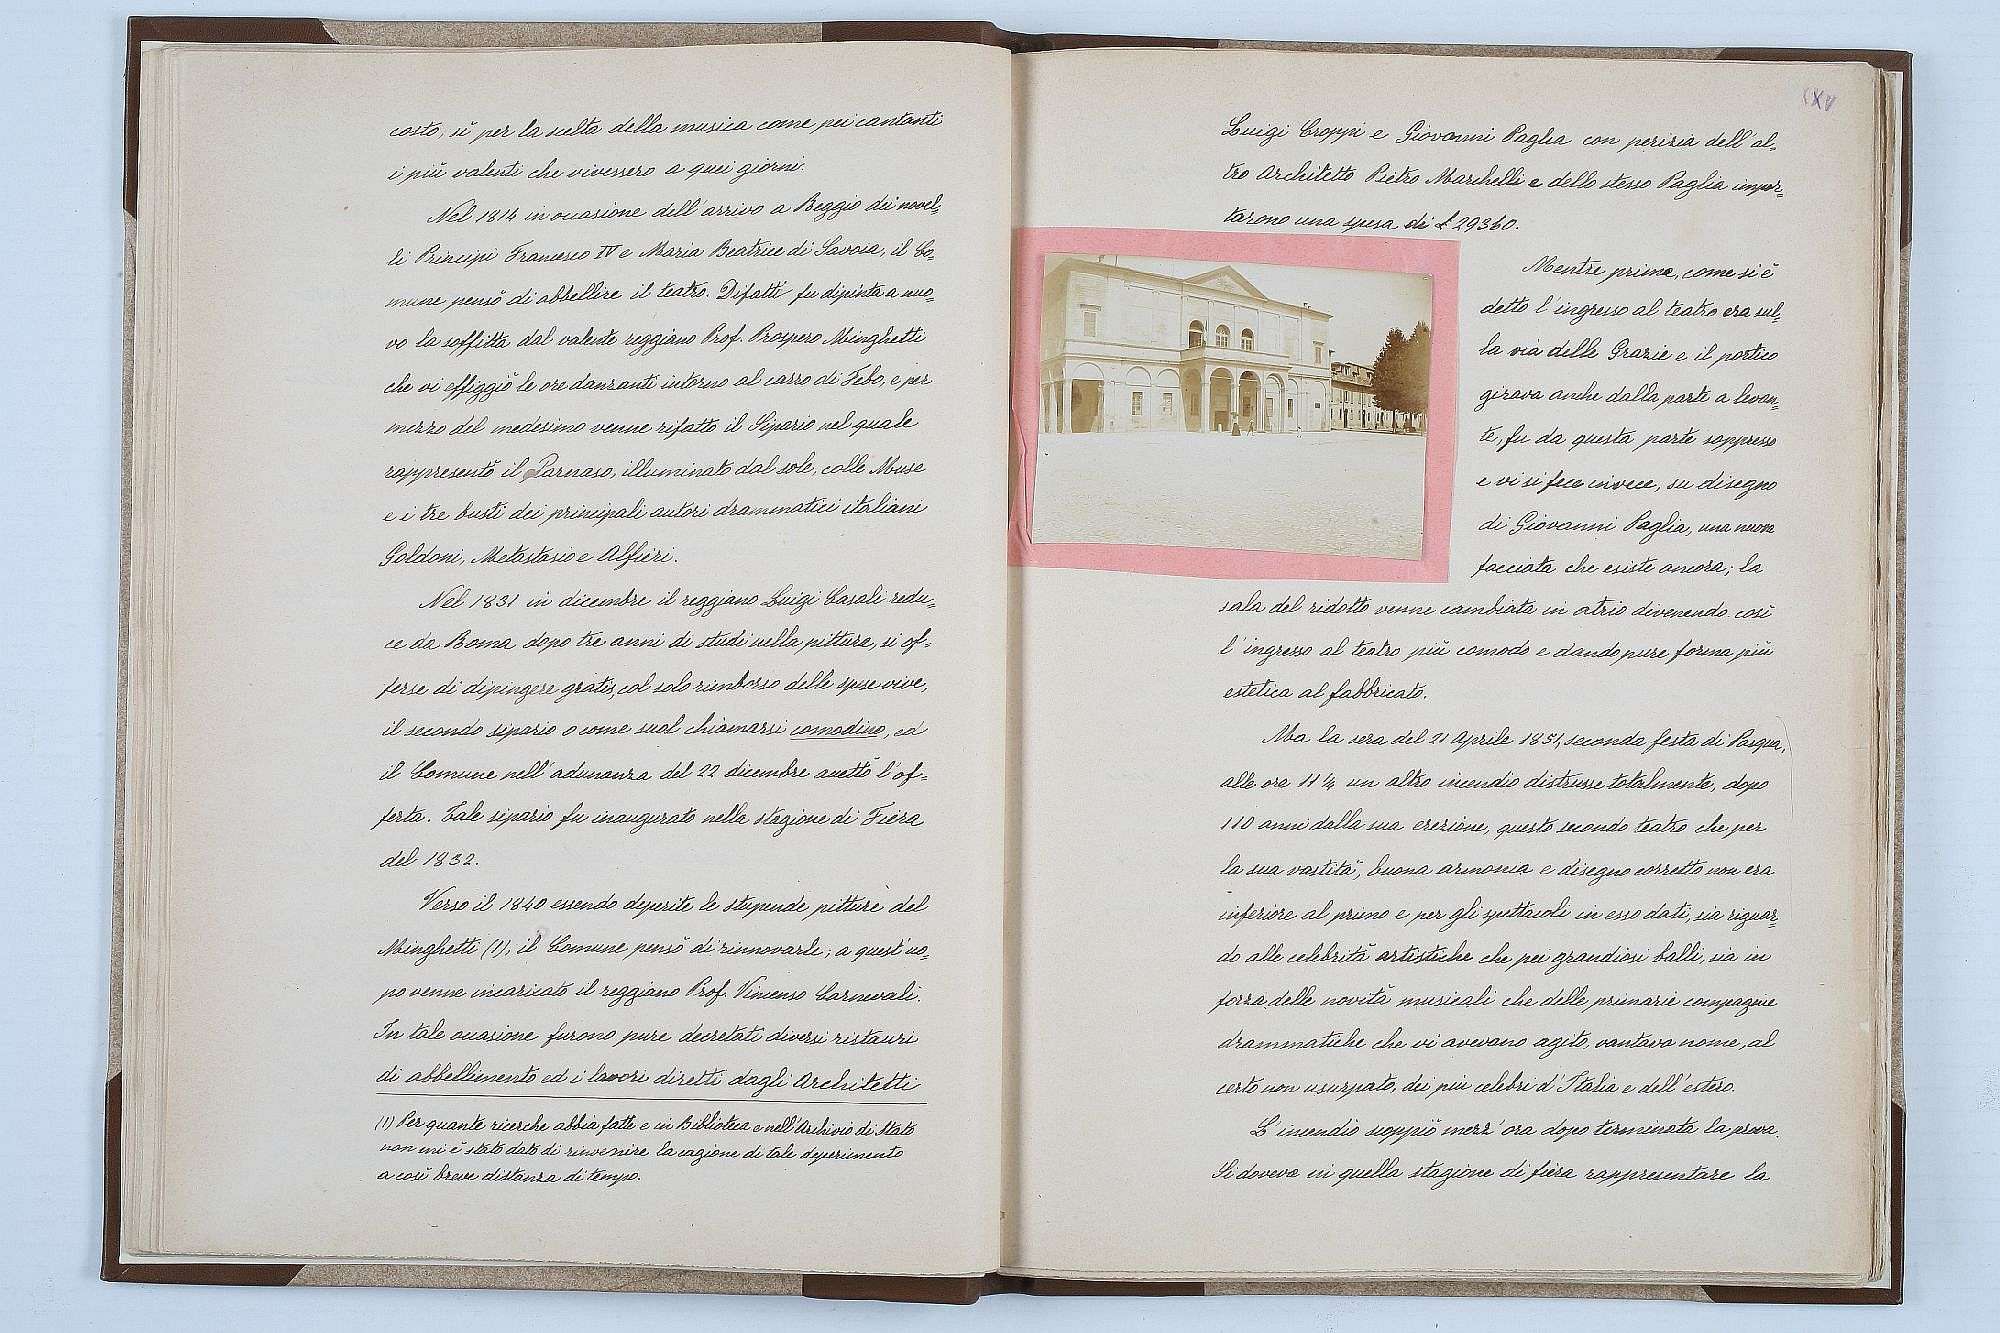 costo, sì per la scelta della musica come pei cantanti
i più valenti che vivessero a quei giorni.
Nel 1814 in occasione dell'arrivo a Reggio dei novel-
li Principi Francesco IV e Maria Beatrice di Savoia, il Co-
mune pensò di abbellire il teatro. Difatti fu dipinta a nuo-
vo la soffitta dal valente reggiano Prof. Prospero Minghetti
che vi effiggiò le ore danzanti intorno al carro di Febo, e per
mezzo del medesimo venne rifatto il Sipario nel quale
rappresentò il Parnaso, illuminato dal sole, colle Muse
e i tre busti dei principali autori drammatici italiani
Goldoni, Metastasio e Alfieri.
Nel 1831 in dicembre il reggiano Luigi Casali redu-
ce da Roma dopo tre anni di studi nella pittura, si of-
ferse di dipingere gratis, col solo rimborso delle spese vive,
il secondo sipario o come suol chiamarsi comodino, ed
il Comune nell'adunanza del 22 dicembre accettò l'of-
ferta. Tale sipario fu inaugurato nella stagione di Fiera
del 1832.
Verso il 1840 essendo deperite le stupende pitture del
Minghetti (1), il Comune pensò di rinnovarle; a quest'uo-
po venne incaricato il reggiano Prof. Vincenso Carnevali.
In tale occasione furono pure decretati diversi ristauri
di abbellimento ed i lavori diretti dagli Architetti
(1) Per quante ricerche abbia fatte e in Biblioteca e nell'Archivio di Stato
non mi è stato dato di rinvenire la cagione di tale deperimento
a così breve distanza di tempo.
CXV
Luigi Croppi e Giovanni Paglia con perizia dell'al-
tro Architetto Pietro Marchelli e dello stesso Paglia impor-
tarono una spesa di £ 29360.
Mentre prima, come si è
detto l'ingresso al teatro era sul-
la via delle Grazie e il portico
girava anche dalla parte a levan-
te, fu da questa parte soppresso
e vi si fece invece, su disegno
di Giovanni Paglia, una nuova
facciata che esiste ancora; la
sala del ridotto venne cambiata in atrio divenendo così
l'ingresso al teatro più comodo e dando pure forma più
estetica al fabbricato.
Ma la sera del 21 Aprile 1851, seconda festa di Pasqua,
alle ore 11 ¼ un altro incendio distrusse totalmente, dopo
110 anni dalla sua erezione, questo secondo teatro che per
la sua vastità, buona armonia e disegno corretto non era
inferiore al primo e per gli spettacoli in esso dati, sia riguar-
do alle celebrità artistiche che pei grandiosi balli, sia in
forza delle novità musicali che delle primarie compagnie
drammatiche che vi avevano agito, vantava nome, al
certo non usurpato, dei più celebri d'Italia e dell'estero.
L'incendio scoppiò mezz'ora dopo terminata la prova.
Si doveva in quella stagione di fiera rappresentare la